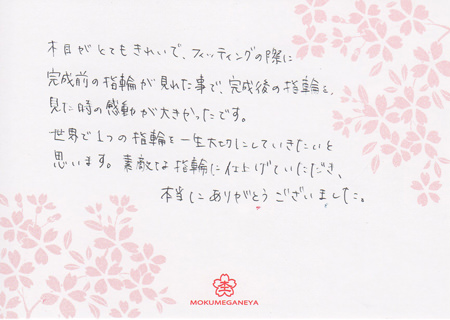 木目がとてもきれいで、フィッティングの際に
完成前の指輪が見れた事で、完成後の指輪を
見た時の感動が大きかったです。
世界で1つの指輪を一生大切にしていきたいと
思います。素敵な指輪に仕上げていただき、
本当にありがとうございました。
MOKUMEGANEYA